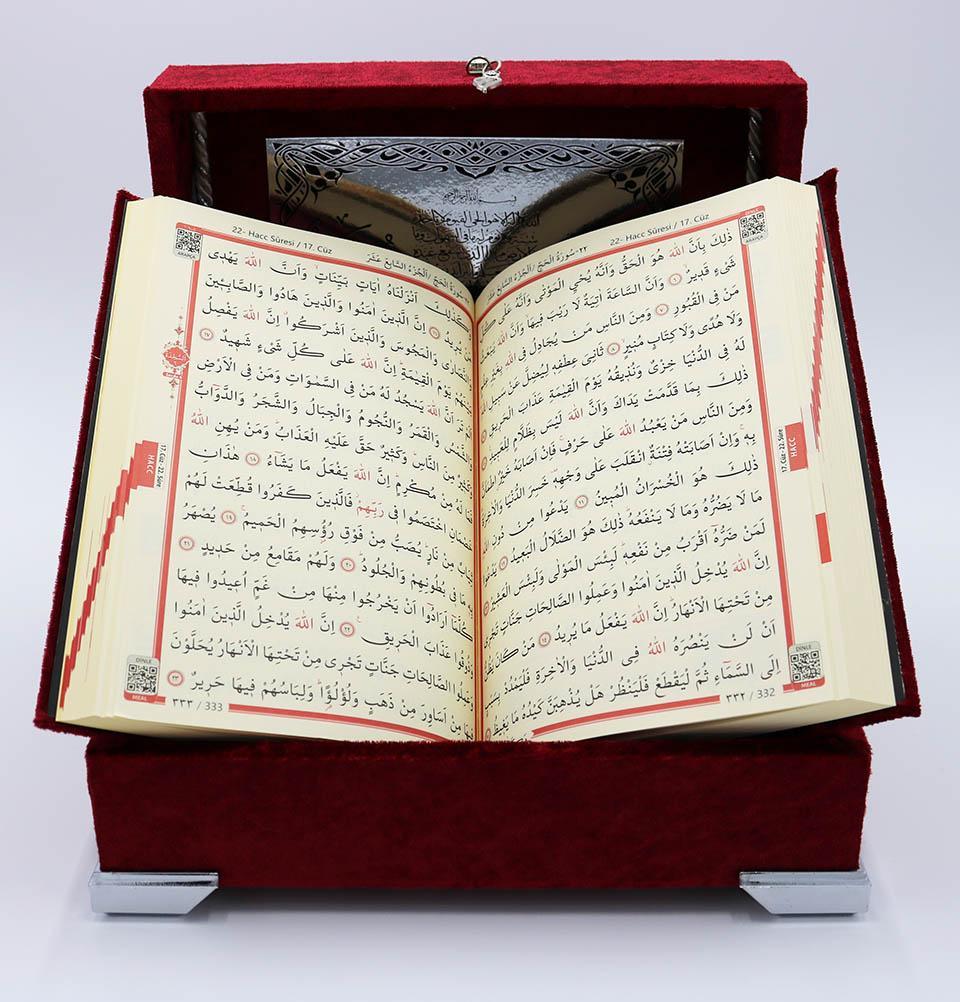 22- Hacc Sûresi / 17. Cüz
٢٢-سُورَةُ الْحَجّ /اَلْجُزْءُ السَّابِعَ
ذٰلِكَ بِاَنَّ اللّٰهَ هُوَ الْحَقُّ وَاَنَّهُ يُحْيِ الْمَوْتٰى وَاَنَّهُ عَلٰى
شَيْءٍ قَدِيرٌ ٦ وَاَنَّ السَّاعَةَ اٰتِيَةٌ لَا رَيْبَ فِيهَا وَاَنَّ اللّٰهَ يَبْعَثُ
مَنْ فِى الْقُبُورِ ٧ وَمِنَ النَّاسِ مَنْ يُجَادِلُ فِى اللّٰهِ بِغَيْرِ
وَلَا هُدًى وَلَا كِتَابٍ مُنِيرٍ ٨ ثَانِىَ عِطْفِهِ لِيُضِلَّ عَنْ سَبِيلِ اللّٰهِ
لَهُ فِى الدُّنْيَا خِزْىٌ وَنُذِيقُهُ يَوْمَ الْقِيٰمَةِ عَذَابَ الْحَرِيقِ
ذٰلِكَ بِمَا قَدَّمَتْ يَدَاكَ وَاَنَّ اللّٰهَ لَيْسَ بِظَلَّامٍ لِلْعَبِيدِ
وَمِنَ النَّاسِ مَنْ يَعْبُدُ اللّٰهَ عَلٰى حَرْفٍ فَاِنْ اَصَابَهُ خَيْرٌ اطْمَاَنَّ
بِهِ وَاِنْ اَصَابَتْهُ فِتْنَةٌ انْقَلَبَ عَلٰى وَجْهِهِ خَسِرَ الدُّنْيَا وَالْاٰخِرَةَ
ذٰلِكَ هُوَ الْخُسْرَانُ الْمُبِينُ ١١ يَدْعُوا مِنْ دُونِ اللّٰهِ
مَا لَا يَضُرُّهُ وَمَا لَا يَنْفَعُهُ ذٰلِكَ هُوَ الضَّلَالُ الْبَعِيدُ ١٢ يَدْعُوا
لَمَنْ ضَرُّهُ اَقْرَبُ مِنْ نَفْعِهِ لَبِئْسَ الْمَوْلٰى وَلَبِئْسَ الْعَشِيرُ
اِنَّ اللّٰهَ يُدْخِلُ الَّذِينَ اٰمَنُوا وَعَمِلُوا الصَّالِحَاتِ جَنَّاتٍ تَجْرِى
مِنْ تَحْتِهَا الْاَنْهَارُ اِنَّ اللّٰهَ يَفْعَلُ مَا يُرِيدُ ١٤ مَنْ كَانَ يَظُنُّ
اَنْ لَنْ يَنْصُرَهُ اللّٰهُ فِى الدُّنْيَا وَالْاٰخِرَةِ فَلْيَمْدُدْ
اِلَى السَّمَٓاءِ ثُمَّ لْيَقْطَعْ فَلْيَنْظُرْ هَلْ يُذْهِبَنَّ كَيْدُهُ مَا يَغِيظُ
٣٣٢ / 332
ARAPÇA
HACC
17. Cüz -22. Sûre
DİNLE
MEAL
22- Hacc Sûresi / 17. Cüz
سُورَةُ الْحَجّ /اَلْجُزْءُ السَّابِعَ عَشَرَ
وَكَذٰلِكَ اَنْزَلْنَاهُ اٰيَاتٍ بَيِّنَاتٍ وَاَنَّ اللّٰهَ يَهْدِى
مَنْ يُرِيدُ ١٦ اِنَّ الَّذِينَ اٰمَنُوا وَالَّذِينَ هَادُوا وَالصَّابِئِينَ
وَالنَّصَارٰى وَالْمَجُوسَ وَالَّذِينَ اَشْرَكُوا اِنَّ اللّٰهَ يَفْصِلُ
بَيْنَهُمْ يَوْمَ الْقِيٰمَةِ اِنَّ اللّٰهَ عَلٰى كُلِّ شَيْءٍ شَهِيدٌ ١٧
اَلَمْ تَرَ اَنَّ اللّٰهَ يَسْجُدُ لَهُ مَنْ فِى السَّمٰوَاتِ وَمَنْ فِى الْاَرْضِ
وَالشَّمْسُ وَالْقَمَرُ وَالنُّجُومُ وَالْجِبَالُ وَالشَّجَرُ وَالدَّوَٓابُّ
وَكَثِيرٌ مِنَ النَّاسِ وَكَثِيرٌ حَقَّ عَلَيْهِ الْعَذَابُ وَمَنْ يُهِنِ اللّٰهُ
فَمَا لَهُ مِنْ مُكْرِمٍ اِنَّ اللّٰهَ يَفْعَلُ مَا يَشَٓاءُ ١٨ هٰذَانِ
خَصْمَانِ اخْتَصَمُوا فِى رَبِّهِمْ فَالَّذِينَ كَفَرُوا قُطِّعَتْ لَهُمْ
ثِيَابٌ مِنْ نَارٍ يُصَبُّ مِنْ فَوْقِ رُؤُسِهِمُ الْحَمِيمُ ١٩ يُصْهَرُ
بِهِ مَا فِى بُطُونِهِمْ وَالْجُلُودُ ٢٠ وَلَهُمْ مَقَامِعُ مِنْ حَدِيدٍ ٢١
كُلَّمَٓا اَرَادُٓوا اَنْ يَخْرُجُوا مِنْهَا مِنْ غَمٍّ اُعِيدُوا فِيهَا
وَذُوقُوا عَذَابَ الْحَرِيقِ ٢٢ اِنَّ اللّٰهَ يُدْخِلُ الَّذِينَ اٰمَنُوا
وَعَمِلُوا الصَّالِحَاتِ جَنَّاتٍ تَجْرِى مِنْ تَحْتِهَا الْاَنْهَارُ يُحَلَّوْنَ
فِيهَا مِنْ اَسَاوِرَ مِنْ ذَهَبٍ وَلُؤْلُؤًا وَلِبَاسُهُمْ فِيهَا حَرِيرٌ ٢٣
٣٣٣ / 333
ARAPÇA
HACC
17. Cüz -22. Sûre
DİNLE
MEAL